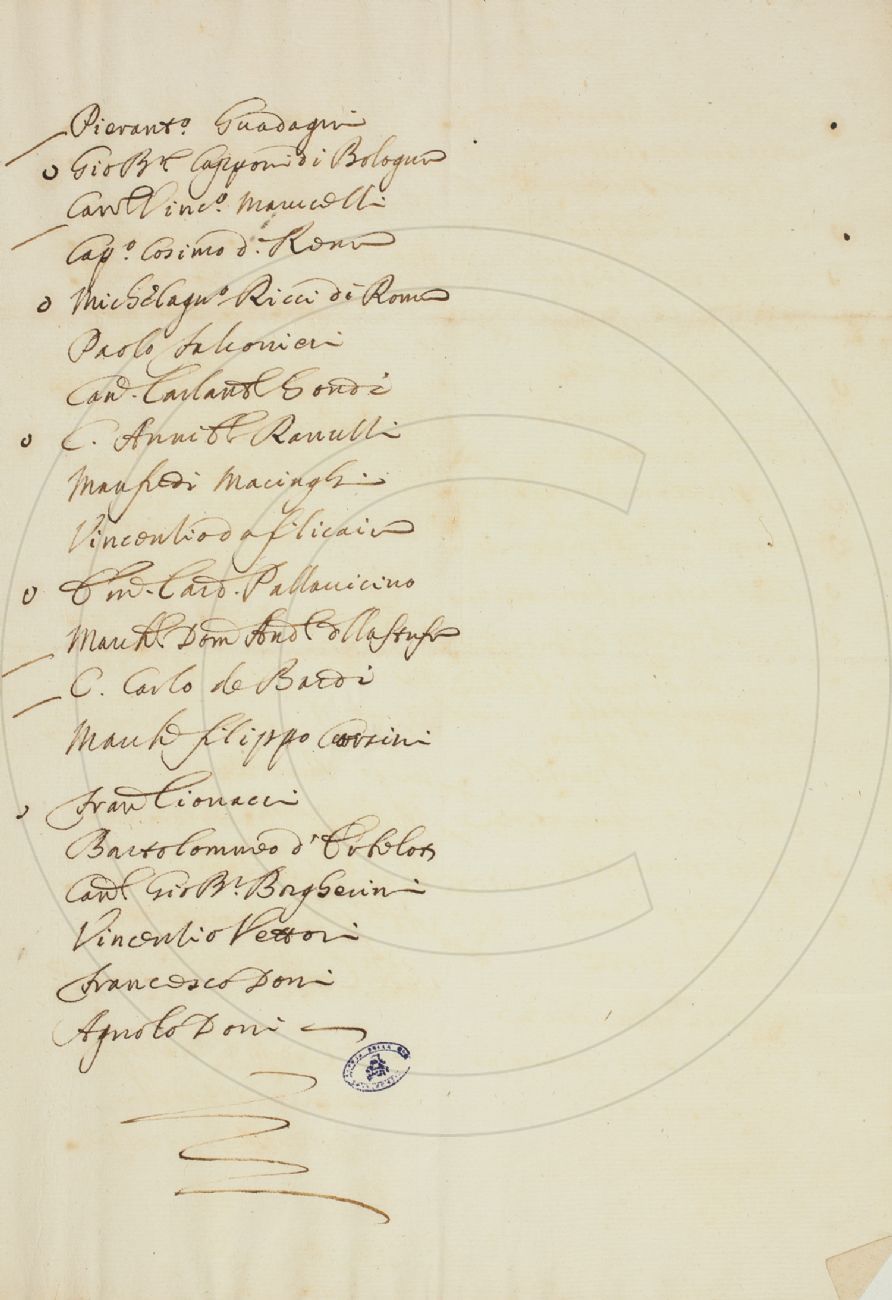 Pierant.º Guadagni
o Gio B.ª Capponi di Bologna
Cav.re Vinc.º Marucelli
Cap.º Cosimo d. Rena
o Michelagn.º Ricci di Roma
Paolo Falconieri
Cand. Carlant.º Gondi
o C. Annib.le Ranulli
Manfredi Macinghi
Vincentio da Filicaia
o Card. Pallavicino
March.e Dom And.ª
C. Carlo de Bardi
March.e Filippo Corsini
Fran.co Cionacci
Bartolommeo d'
Cav.re Gio B.ª Borgherini
Vincentio Vettori
Francesco Doni
Agnolo Doni